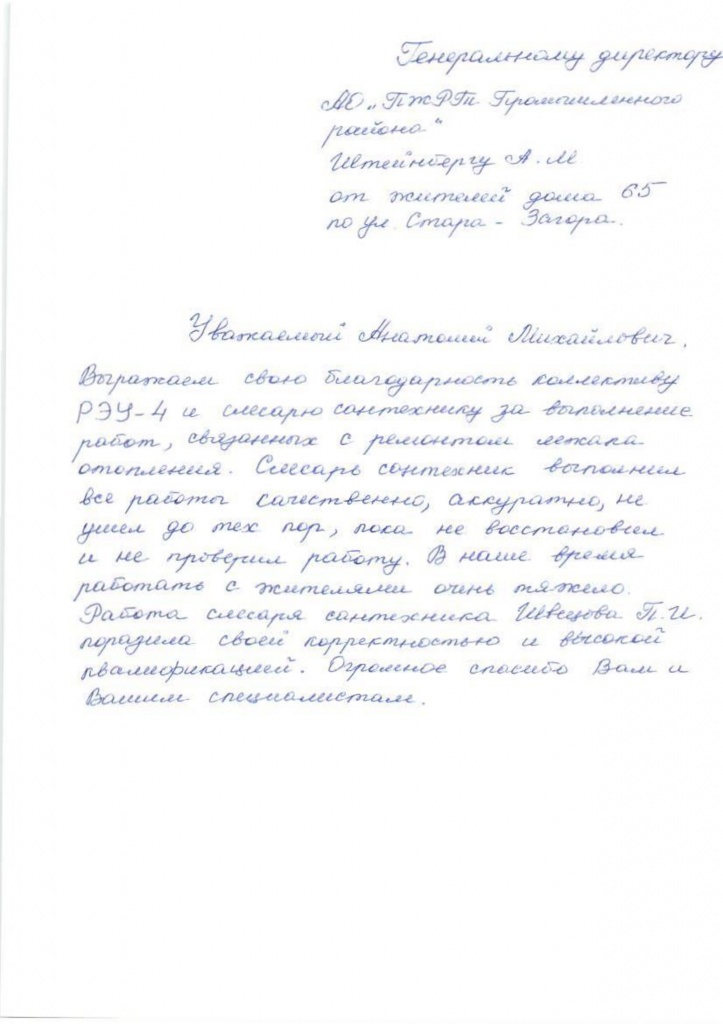 Генеральному директору
АО „ПЖРТ Промышленного
района“
Штейнбергу А.М
от жителей дома 65
по ул. Стара - Загора.
Уважаемый Анатолий Михайлович.
Выражаем свою благодарность коллективу
РЭУ-4 и слесарю сантехнику за выполнение
работ, связанных с ремонтом лежака
отопления. Слесарь сантехник выполнил
все работы качественно, аккуратно, не
ушел до тех пор, пока не восстановил
и не проверил работу. В наше время
работать с жителями очень тяжело.
Работа слесаря сантехника Швецова П.И.
поразила своей корректностью и высокой
квалификацией. Огромное спасибо Вам и
Вашим специалистам.